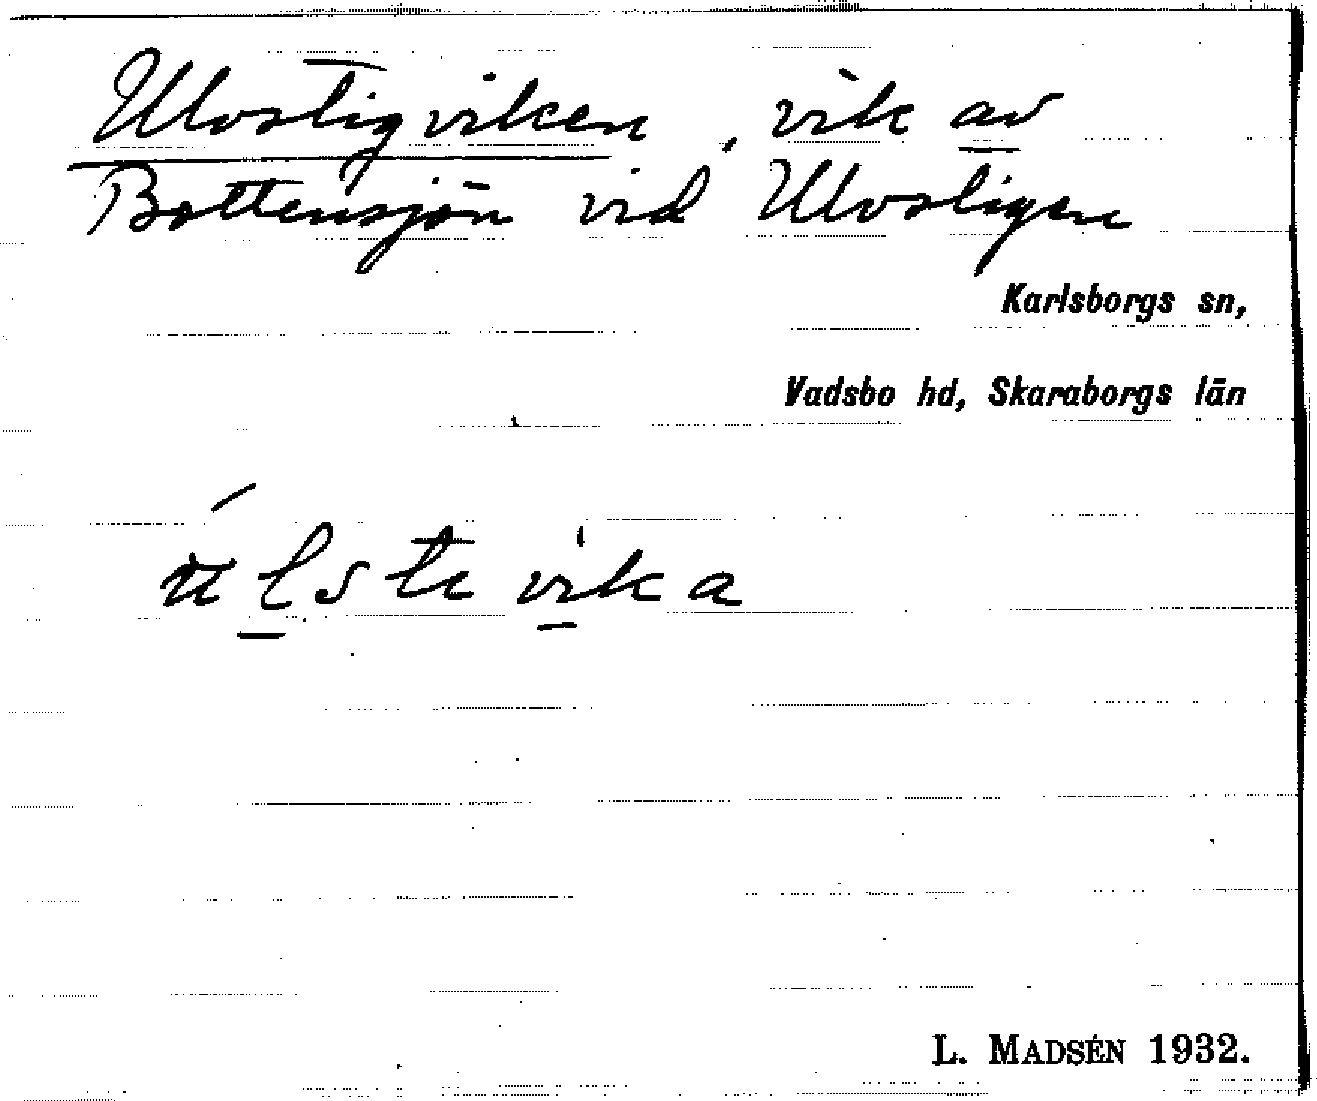 Ulvstigviken, vik av
Bottensjön vid Ulvstigen
Karlsborgs sn,
Vadsbo hd, Skaraborgs län
L. MADSÉN 1932.